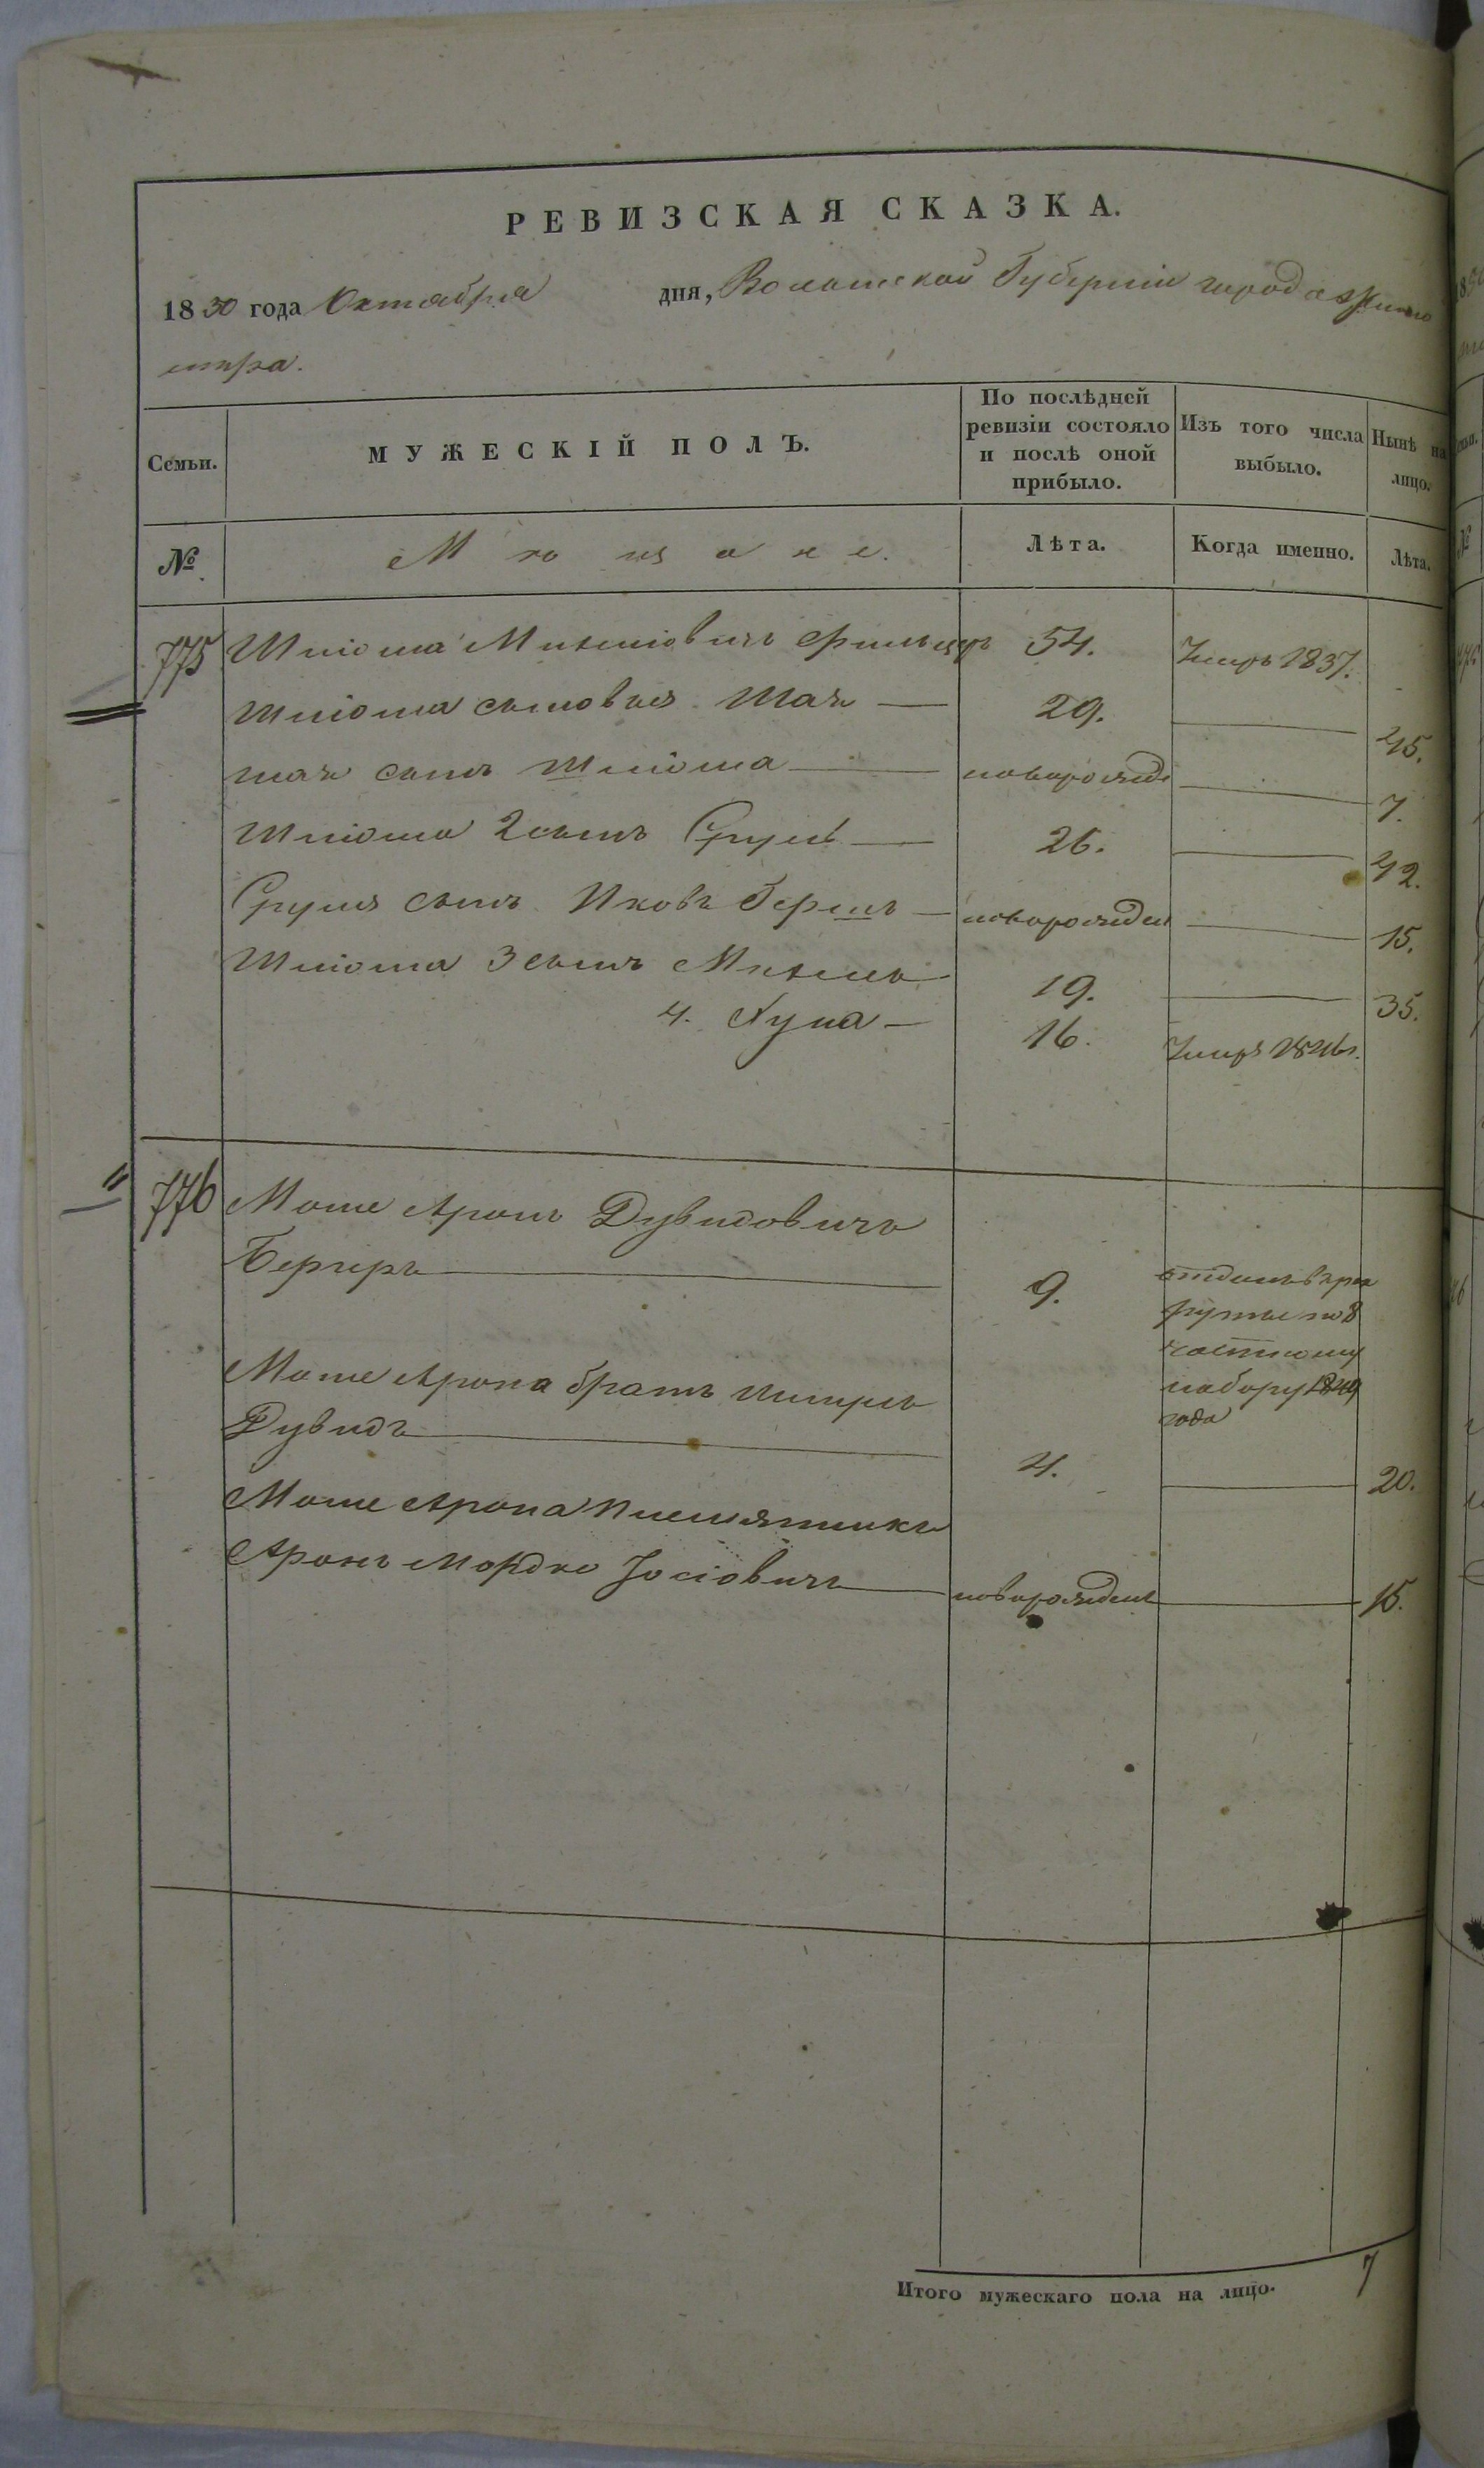 РЕВИЗСКАЯ СКАЗКА.
1850 года Октября дня, Волынской Губерніи города Жито
мира.
Семьи. МУЖЕСКІЙ ПОЛЪ. По послѣдней ревизіи состояло и послѣ оной прибыло. Изъ того числа выбыло. Нынѣ на лицо.
№ Мѣщане. Лѣта. Когда именно. Лѣта.
775 Шліома Михеліовичъ 54. Умеръ 1837.
Шліома сыновья Шая — 29. — 45.
Шаи сынъ Шліома — новорожде — 7.
Шліома 2 сынъ Сруль — 26. — 42.
Сруля сынъ Ицко Гершъ — новорожден — 15.
Шліома 3 сынъ Михель 19. — 35.
4. Хуна — 16. Умеръ 1846 г.
776 Моше Аронъ Дувидовичъ
Бергеръ — 9. отданъ в рек
руты по 8
частному
набору 1849
года
Моше Арона братъ Шмуль
Дувидъ — 4. — 20.
Моше Арона племянникъ
Аронъ Мордко Іосіовичъ — новорожденъ — 15.
Итого мужескаго пола на лицо. 7